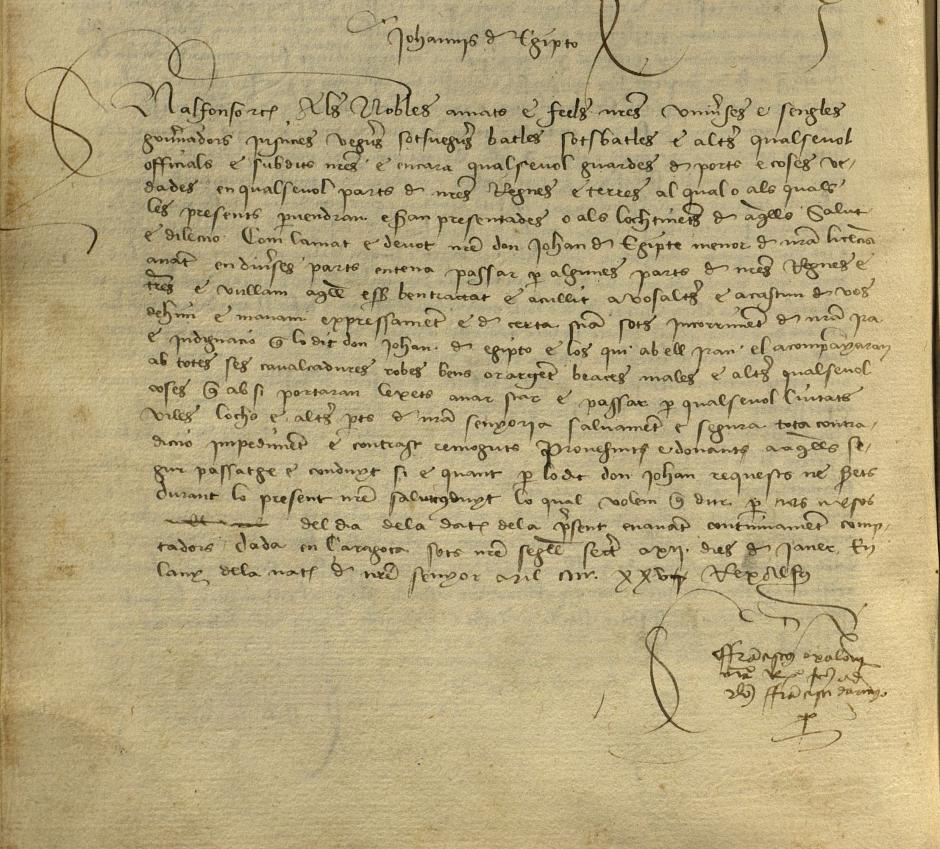 Johannis d Egipto
N alfonso etc. Als Nobles amats e feels nres univses e sengles
govnadors justicies veguers sotsveguers batles sotsbatles e altres qualsevol
officials e subdits nres e encara qualsevol guardes d ports e coses ve-
dades en qualsevol parts d nres Regnes e terres al qual o als quals
les presents pvendran e seran presentades o als lochtinets d aqlls Salut
e dileccio. Com lamat e devot nre don Johan d Egipte menor d nra licencia
anat en divses parts entena passar p algunes parts d nres Regnes e
tres e vullam aqll esser ben tractat e acullit a vosaltres e a cascun d vos
dehim e manam expressamet e d certa scia sots incorrimet d nra ira
e indignacio q lo dit don Johan d egipto e los qui ab ell iran el acompanyaran
ab totes ses cavalcadures robes bens or argent beaces males e altres qualsevol
coses q ab si portaran lexets anar star e passar p qualsevol Ciutats
viles lochs e altres pts d nra senyoria salvamet e segura tota contra-
diccio impedimet e contrast remoguts Provehints e donants a aqlls se-
gur passatge e conduyt si e quant p lo dit don Johan requests ne serets
durant lo present nre salvconduyt lo qual volem q dur p tres mesos
del dia dela dat dela psent enavant continuament comp-
tadors. dada en Caragoça sots nre segell secret a xii dies d Janer. En
lany dela nat d nre senyor Mil CCCC. XXV Rex Alfs
ffranciscus